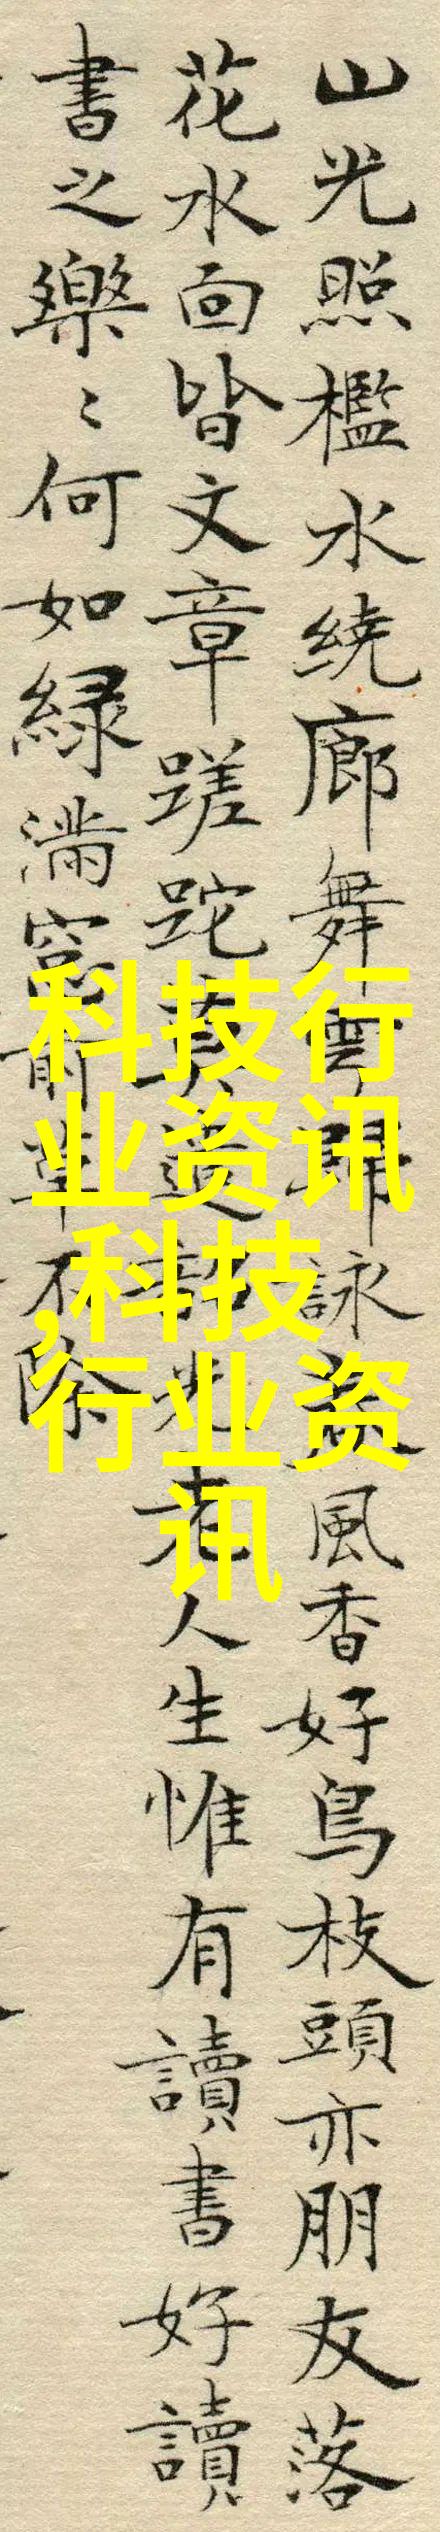 山光照檻水繞廊舞雩歸詠春風香好鳥枝頭亦朋友落
花水面皆文章蹉跎莫遣韶光老人生惟有讀書好讀
書之樂〻何如緑滿窓前草不除
科技行
业资讯
,科技
行业资
讯